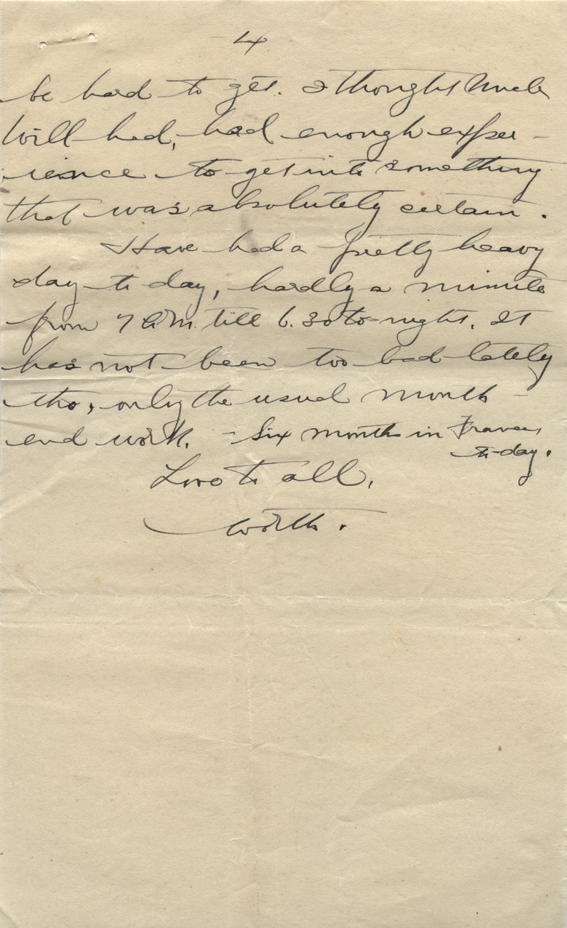 4
be hard to get. I thought Uncle
Will had, had enough exper-
ience to get into something
that was absolutely certain.
Have had a pretty heavy
day to day, hardly a minute
from 7 A.M. till 6.30 to-night. It
has not been too bad lately
tho, only the usual month-
end work. - Six months in France
to-day.
Love to all,
Worth.